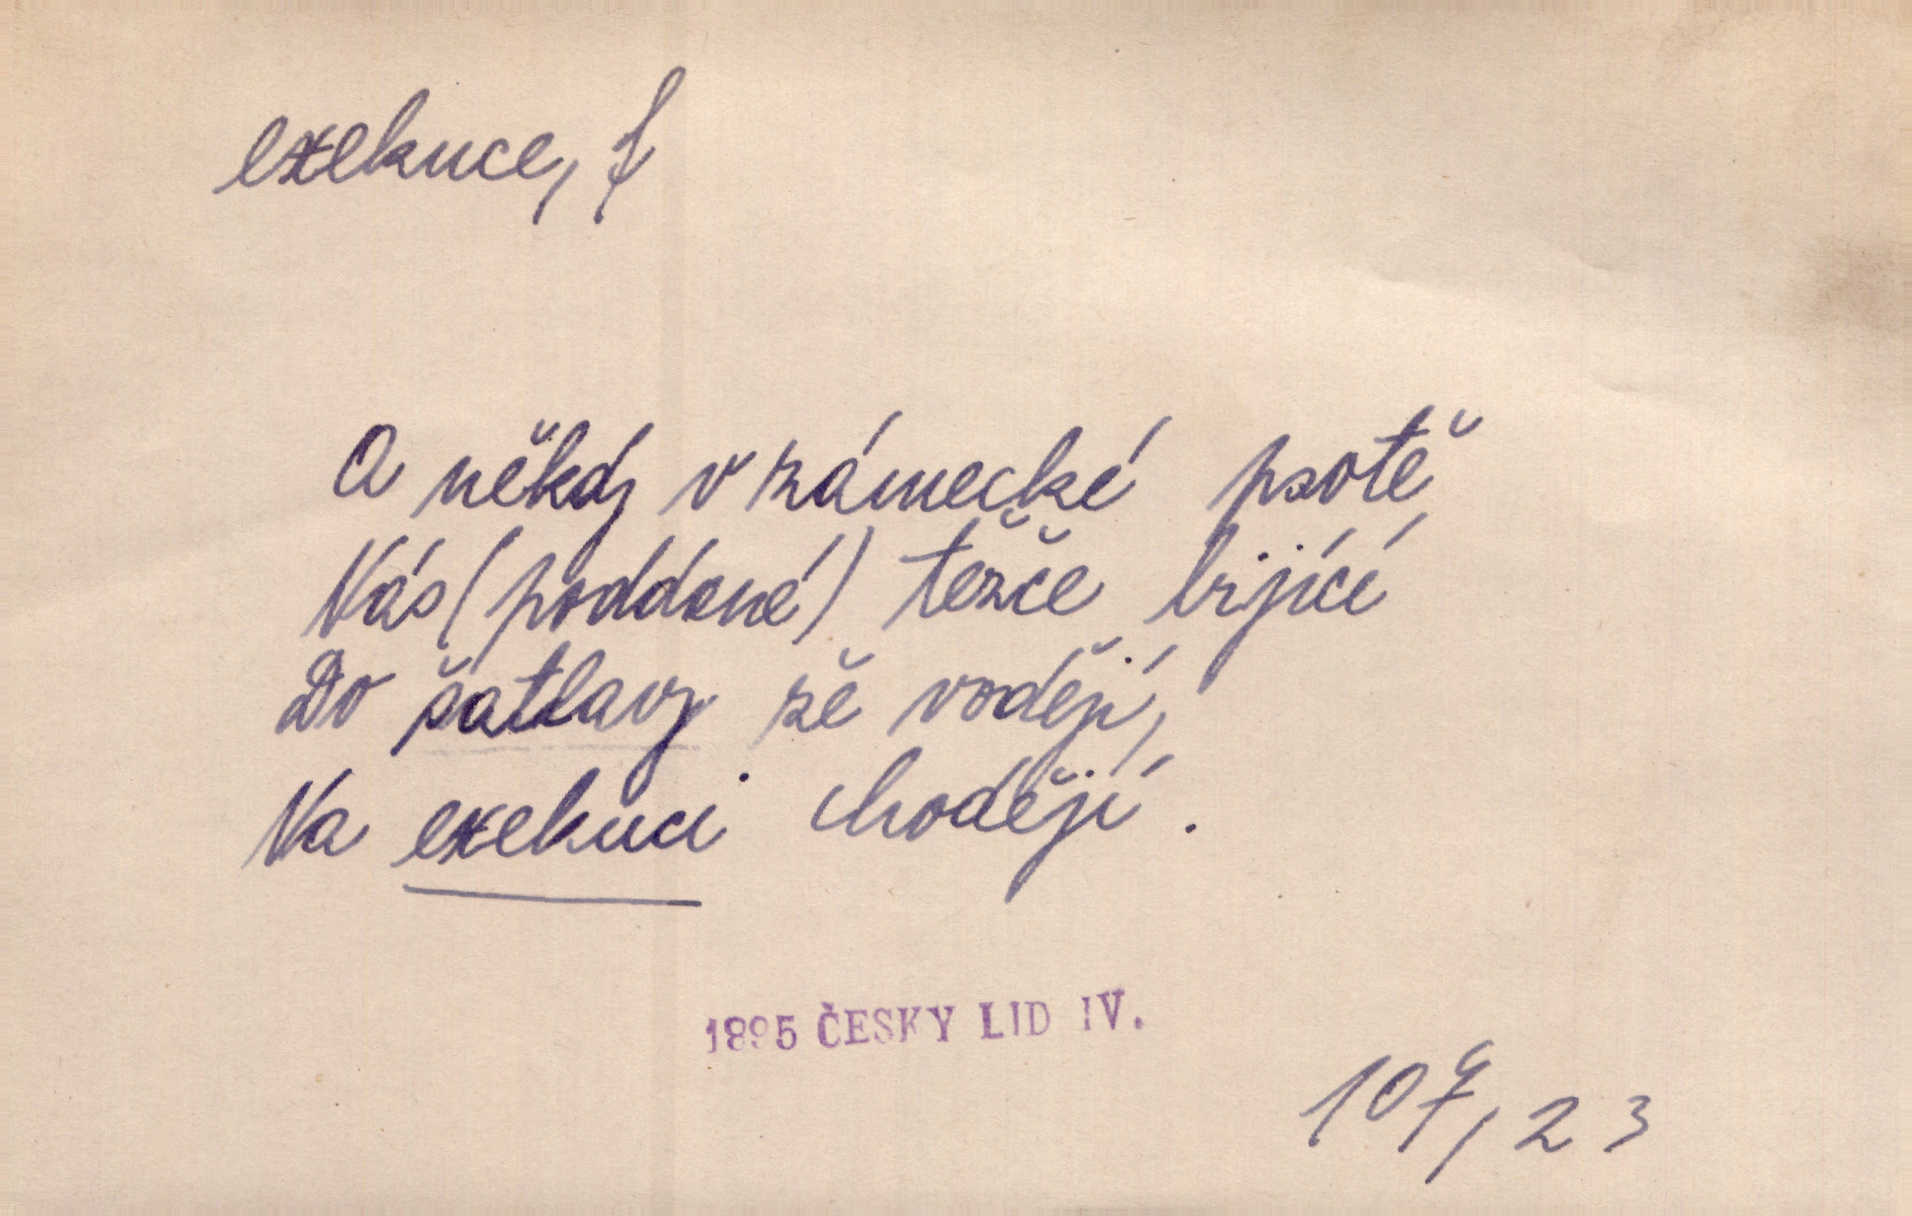 exekuce, f
A někdy v zámecké psotě
Nás (poddané) težče bijící
Do šatlavy zě voději,
Na exekuci chodějí.
1895 ČESKY LID IV.
107, 23